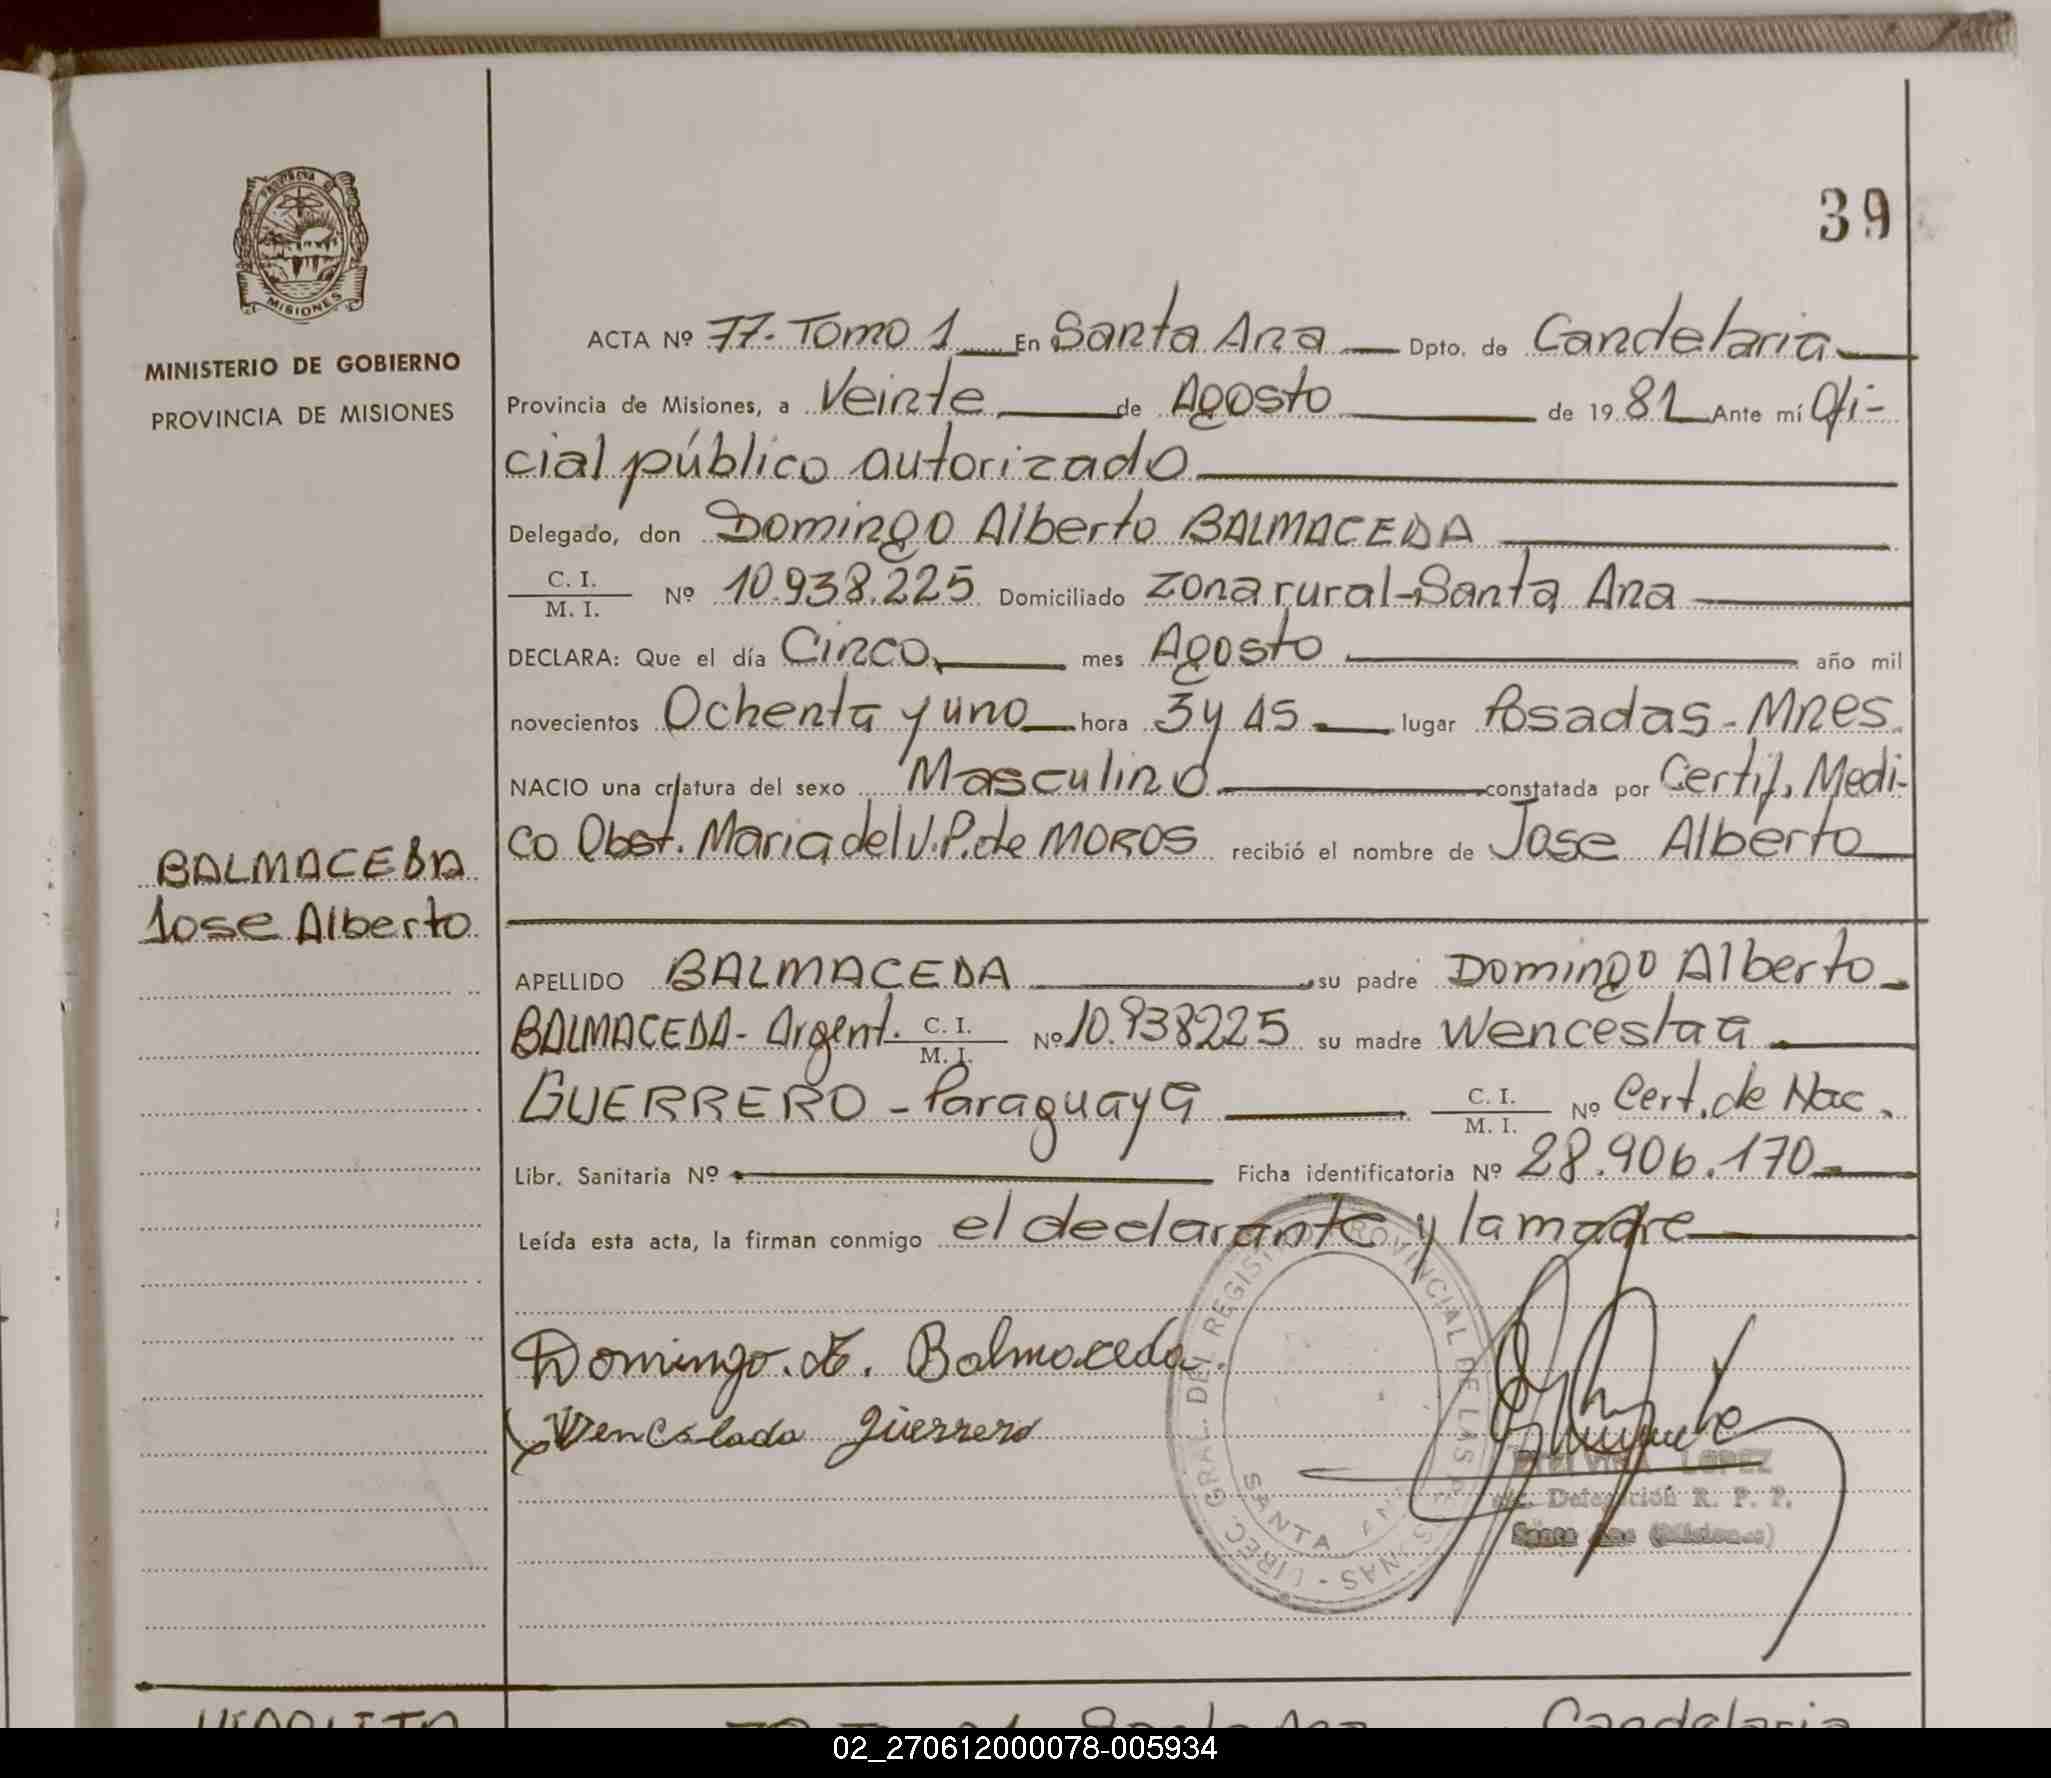 PROVINCIA DE
MISIONES
MINISTERIO DE GOBIERNO
PROVINCIA DE MISIONES
39
ACTA Nº 77. Tomo 1 En Santa Ana Dpto. de Candelaria
Provincia de Misiones, a Veinte de Agosto de 19 81 Ante mí Ofi-
cial público autorizado
Delegado, don Domingo Alberto BALMACEDA
C. I.
M. I. Nº 10.938.225 Domiciliado zona rural-Santa Ana
DECLARA: Que el día Cinco mes Agosto año mil
novecientos Ochenta y uno hora 3 y 45 lugar Posadas - Mnes.
NACIO una criatura del sexo Masculino constatada por Certif. Medi-
co Obst. Maria del V.P. de MOROS recibió el nombre de Jose Alberto
BALMACEDA
Jose Alberto
APELLIDO BALMACEDA su padre Domingo Alberto
BALMACEDA- Argent. C. I.
M. I. Nº 10.938225 su madre Wenceslaa
GUERRERO - Paraguaya C. I.
M. I. Nº Cert. de Nac.
Libr. Sanitaria Nº Ficha identificatoria Nº 28.906.170
Leída esta acta, la firman conmigo el declarante y la madre
Domingo. A. Balmaceda.
Wenceslada Guerrero
DIREC. GRAL. DEL REGISTRO PROVINCIAL DE LAS PERSONAS -
SANTA ANA
LOPEZ
Delegación R. P. P.
Santa Ana (Misiones)
Santa Ana Candelaria
02_270612000078-005934